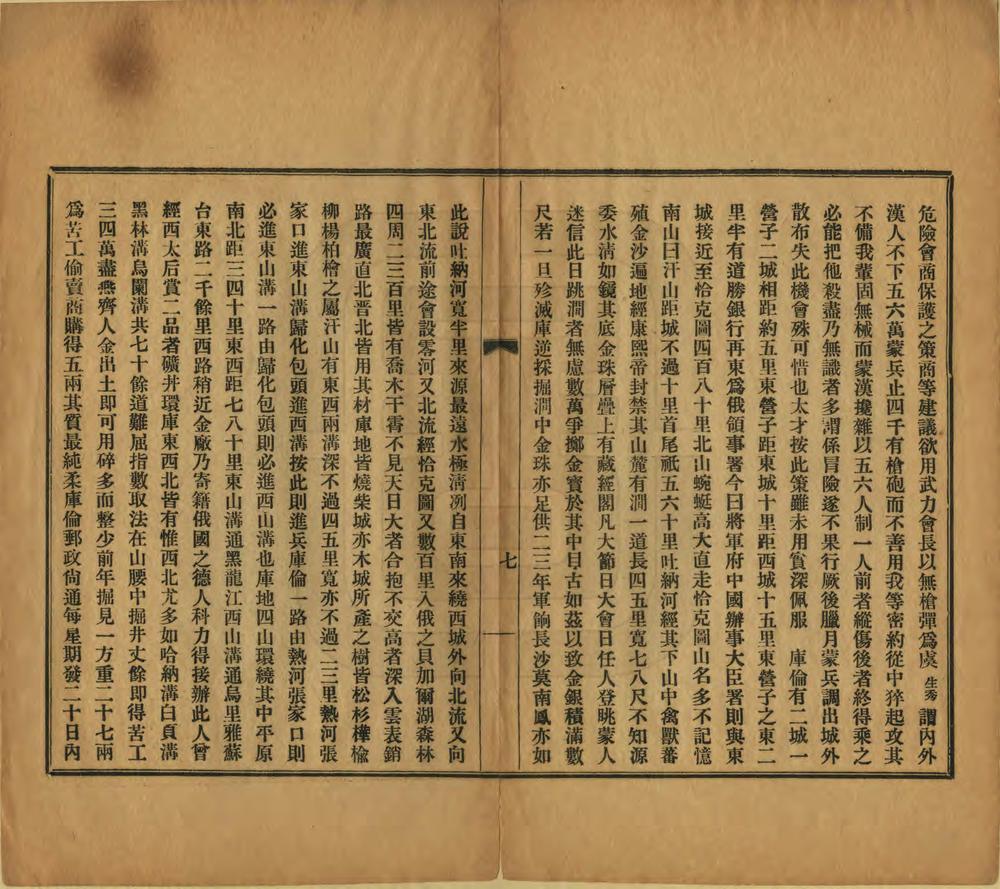 危險會商保護之策商等建議欲用武力會長以無槍彈爲虞生秀謂內外
漢人不下五六萬蒙兵止四千有槍砲而不善用我等密約從中猝起攻其
不備我輩固無械而蒙漢攙雜以五六人制一人前者縱傷後者終得乘之
必能把他殺盡乃無識者多謂係冒險遂不果行厥後臘月蒙兵調出城外
散布失此機會殊可惜也太才按此策雖未用實深佩服　庫倫有二城一
營子二城相距約五里東營子距東城十里距西城十五里東營子之東二
里半有道勝銀行再東爲俄領事署今曰將軍府中國辦事大臣署則與東
城接近至恰克圖四百八十里北山蜿蜒高大直走恰克圖山名多不記憶
南山曰汗山距城不過十里首尾祇五六十里吐納河經其下山中禽獸蕃
殖金沙遍地經康熙帝封禁其山麓有澗一道長四五里寬七八尺不知源
委水淸如鏡其底金珠層疊上有藏經閣凡大節日大會日任人登眺蒙人
迷信此日跳澗者無慮數萬爭擲金寶於其中自古如茲以致金銀積滿數
尺若一旦殄滅庫逆採掘澗中金珠亦足供二三年軍餉長沙莫南鳳亦如
七
此說吐納河寬半里來源最遠水極淸冽自東南來繞西城外向北流又向
東北流前途會設零河又北流經恰克圖又數百里入俄之貝加爾湖森林
四周二三百里皆有喬木干霄不見天日大者合抱不交高者深入雲表銷
路最廣直北晋北皆用其材庫地皆燒柴城亦木城所產之樹皆松杉樺楡
柳楊柏檜之屬汗山有東西兩溝深不過四五里寬亦不過二三里熱河張
家口進東山溝歸化包頭進西溝按此則進兵庫倫一路由熱河張家口則
必進東山溝一路由歸化包頭則必進西山溝也庫地四山環繞其中平原
南北距三四十里東西距七八十里東山溝通黑龍江西山溝通烏里雅蘇
台東路二千餘里西路稍近金廠乃寄籍俄國之德人科力得接辦此人曾
經西太后賞二品者礦井環庫東西北皆有惟西北尤多如哈納溝白貢溝
黑林溝烏闌溝共七十餘道難屈指數取法在山腰中掘井丈餘即得苦工
三四萬盡燕齊人金出土即可用碎多而整少前年掘見一方重二十七兩
爲苦工偷賣商購得五兩其質最純柔庫倫郵政尙通每星期發二十日內